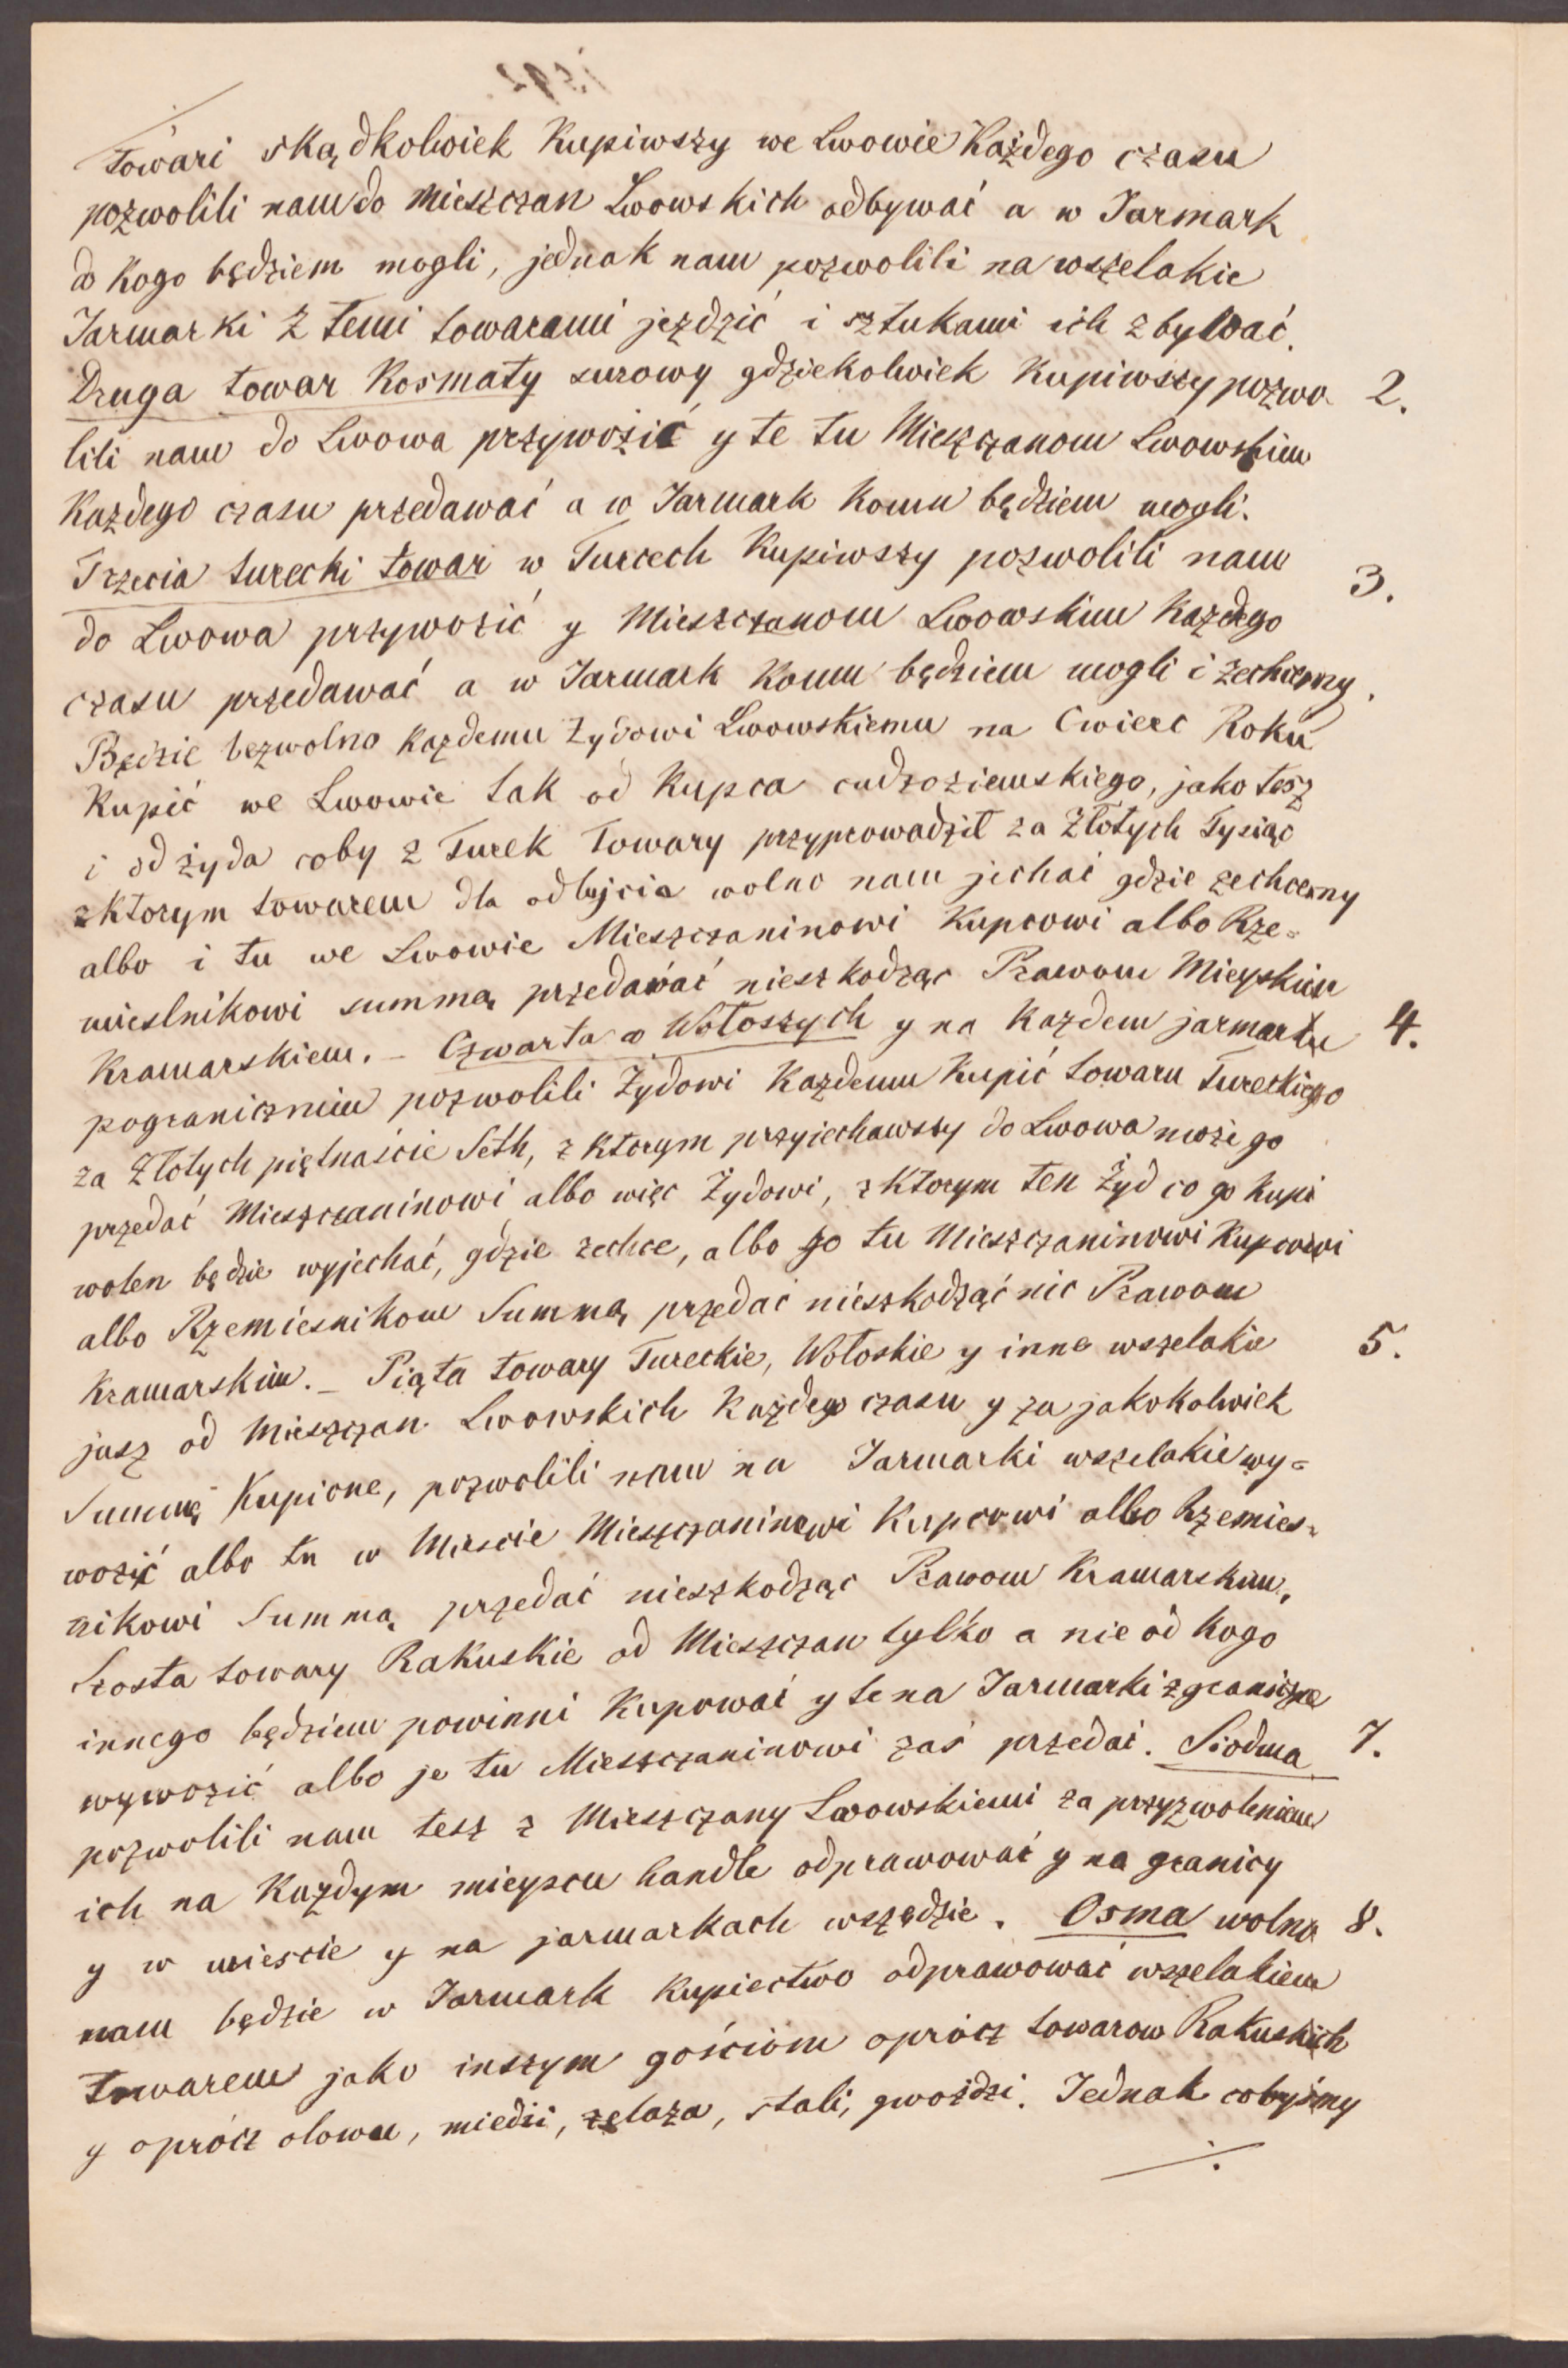 towari skądkolwiek Kupiwszy we Lwowie Każdego czasu
pozwolili nam do Mieszczan Lwowskich odbywać a w Jarmark
do Kogo będziem mogli, jednak nam pozwolili na wszelakie
Jarmarki z temi towarami jeździć i sztukami ich zbywać.
Druga towar Kosmaty surowy gdziekolwiek Kupiwszy pozwo- 2.
lili nam do Lwowa przywozić y te tu Mieszczanom Lwowskim
Kazdego czasu przedawać a w Jarmark Komu będziem mogli.
Trzecia turecki towar w Turcech Kupiwszy pozwolili nam 3.
do Lwowa przywozić y Mieszczanom Lwowskim Kazdego
czasu przedawać a w Jarmark Komu będziem mogli i zechcemy.
Będzie bezwolno każdemu Żydowi Lwowskiemu na Cwierc Roku
Kupić we Lwowie tak od Kupca cudzoziemskiego, jako tesz
i od żyda coby z Turek Towary przyprowadził za Złotych Tysiąc
z Ktorym towarem dla odbycia wolno nam jechać gdzie zechcemy
albo i tu we Lwowie Mieszczaninowi Kupcowi albo Rze=
mieslnikowi summą przedawać nieszkodząc Prawom Mieyskim
Kramarskiem. – Czwarta w Wołoszych y na Kazdem jarmarku 4.
pograniczniem pozwolili Żydowi Kazdemu Kupić towaru Tureckiego
za Złotych piętnaście Seth, z Ktorym przyjechawszy do Lwowa może go
przedać Mieszczaninowi albo więc Żydowi, z Ktorym ten Żyd co go kupi
wolen będzie wyjechać, gdzie zechce, albo go tu Mieszczaninowi Kupcowi
albo Rzemiesnikom Summą przedać nieszkodząć nic Prawom
Kramarskim. – Piąta towary Tureckie, Wołoskie y inne wszelakie 5.
jusz od Mieszczan Lwowskich Każdego czasu y za jakokolwiek
Summę Kupione, pozwolili nam na Jarmarki wszelakie wy=
wozić albo tu w Miescie Mieszczaninowi Kupcowi albo Rzemies=
nikowi Summą przedać nieszkodząc Prawom Kramarskim,
Szosta towary Rakuskie od Mieszczan tylko a nie od Kogo
innego będziem powinni Kupować y te na Jarmarki zgraniczne
wywozić albo je tu Mieszczaninowi zaś przedać. Siodma 7.
pozwolili nam tesz z Mieszczany Lwowskiemi za przyzwoleniem
ich na Kazdym mieyscu handle odprawować y na granicy
y w miescie y na jarmarkach wszędzie. Osma wolno 8.
nam będzie w Jarmark Kupiectwo odprawować wszelakiem
towarem jako inszym gościom oprócz towarow Rakuskich
y oprócz olowu, miedzi, zelaza, stali, gwoździ. Jednak cobyśmy